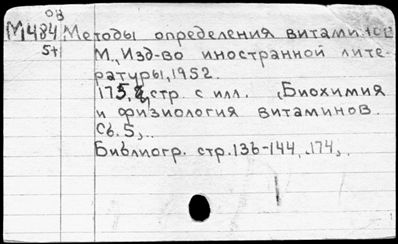 ов
М484 Методы определения витаминов
5+ М., Изд-во иностранной лите-
ратуры, 1952.
175, 2, стр. с илл. (Биохимия
и физиология витаминов.
Сб. 5).
Библиогр. стр. 136-144, 174.